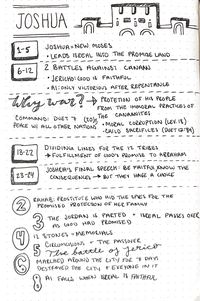 JOSHUA
1-5 JOSHUA = NEW MOSES
• LEADS ISREAL INTO THE PROMISE LAND
6-12 2 BATTLES AGAINST CANAAN
• JERICHO: GOD IS FAITHFUL
• AI: ONLY VICTORIOUS AFTER REPENTANCE
Why war? → PROTETION OF HIS PEOPLE
FROM THE IMMORAL PRACTICES OF
THE CANAANITES
COMMAND: DUET 7 + 20
PEACE W/ ALL OTHER NATIONS
• MORAL CORRUPTION (LEV. 18)
• CHILD SACRIFICES (DUET 12)
13-22 DIVIDING LINES FOR THE 12 TRIBES
→ FULFILLMENT OF GOD'S PROMISE TO ABRAHAM
23-24 JOSHUA'S FINAL SPEECH: BE FAITHFUL, KNOW THE
CONSEQUENCES → BUT THEY HAVE A CHOICE
2 RAHAB: PROSTITUTE WHO HID THE SPIES FOR THE
PROMISED PROTECTION OF HER FAMILY
3 THE JORDAN IS PARTED + ISREAL PASSES OVER
AS GOD HAD PROMISED
4 12 STONES = MEMORIALS
5 CIRCUMCISION + THE PASSOVER
6 The battle of Jericho
MARCHED AROUND THE CITY FOR 7 DAYS
DESTROYED THE CITY + EVERYONE IN IT
8 AI FALLS WHEN ISREAL IS FAITHFUL